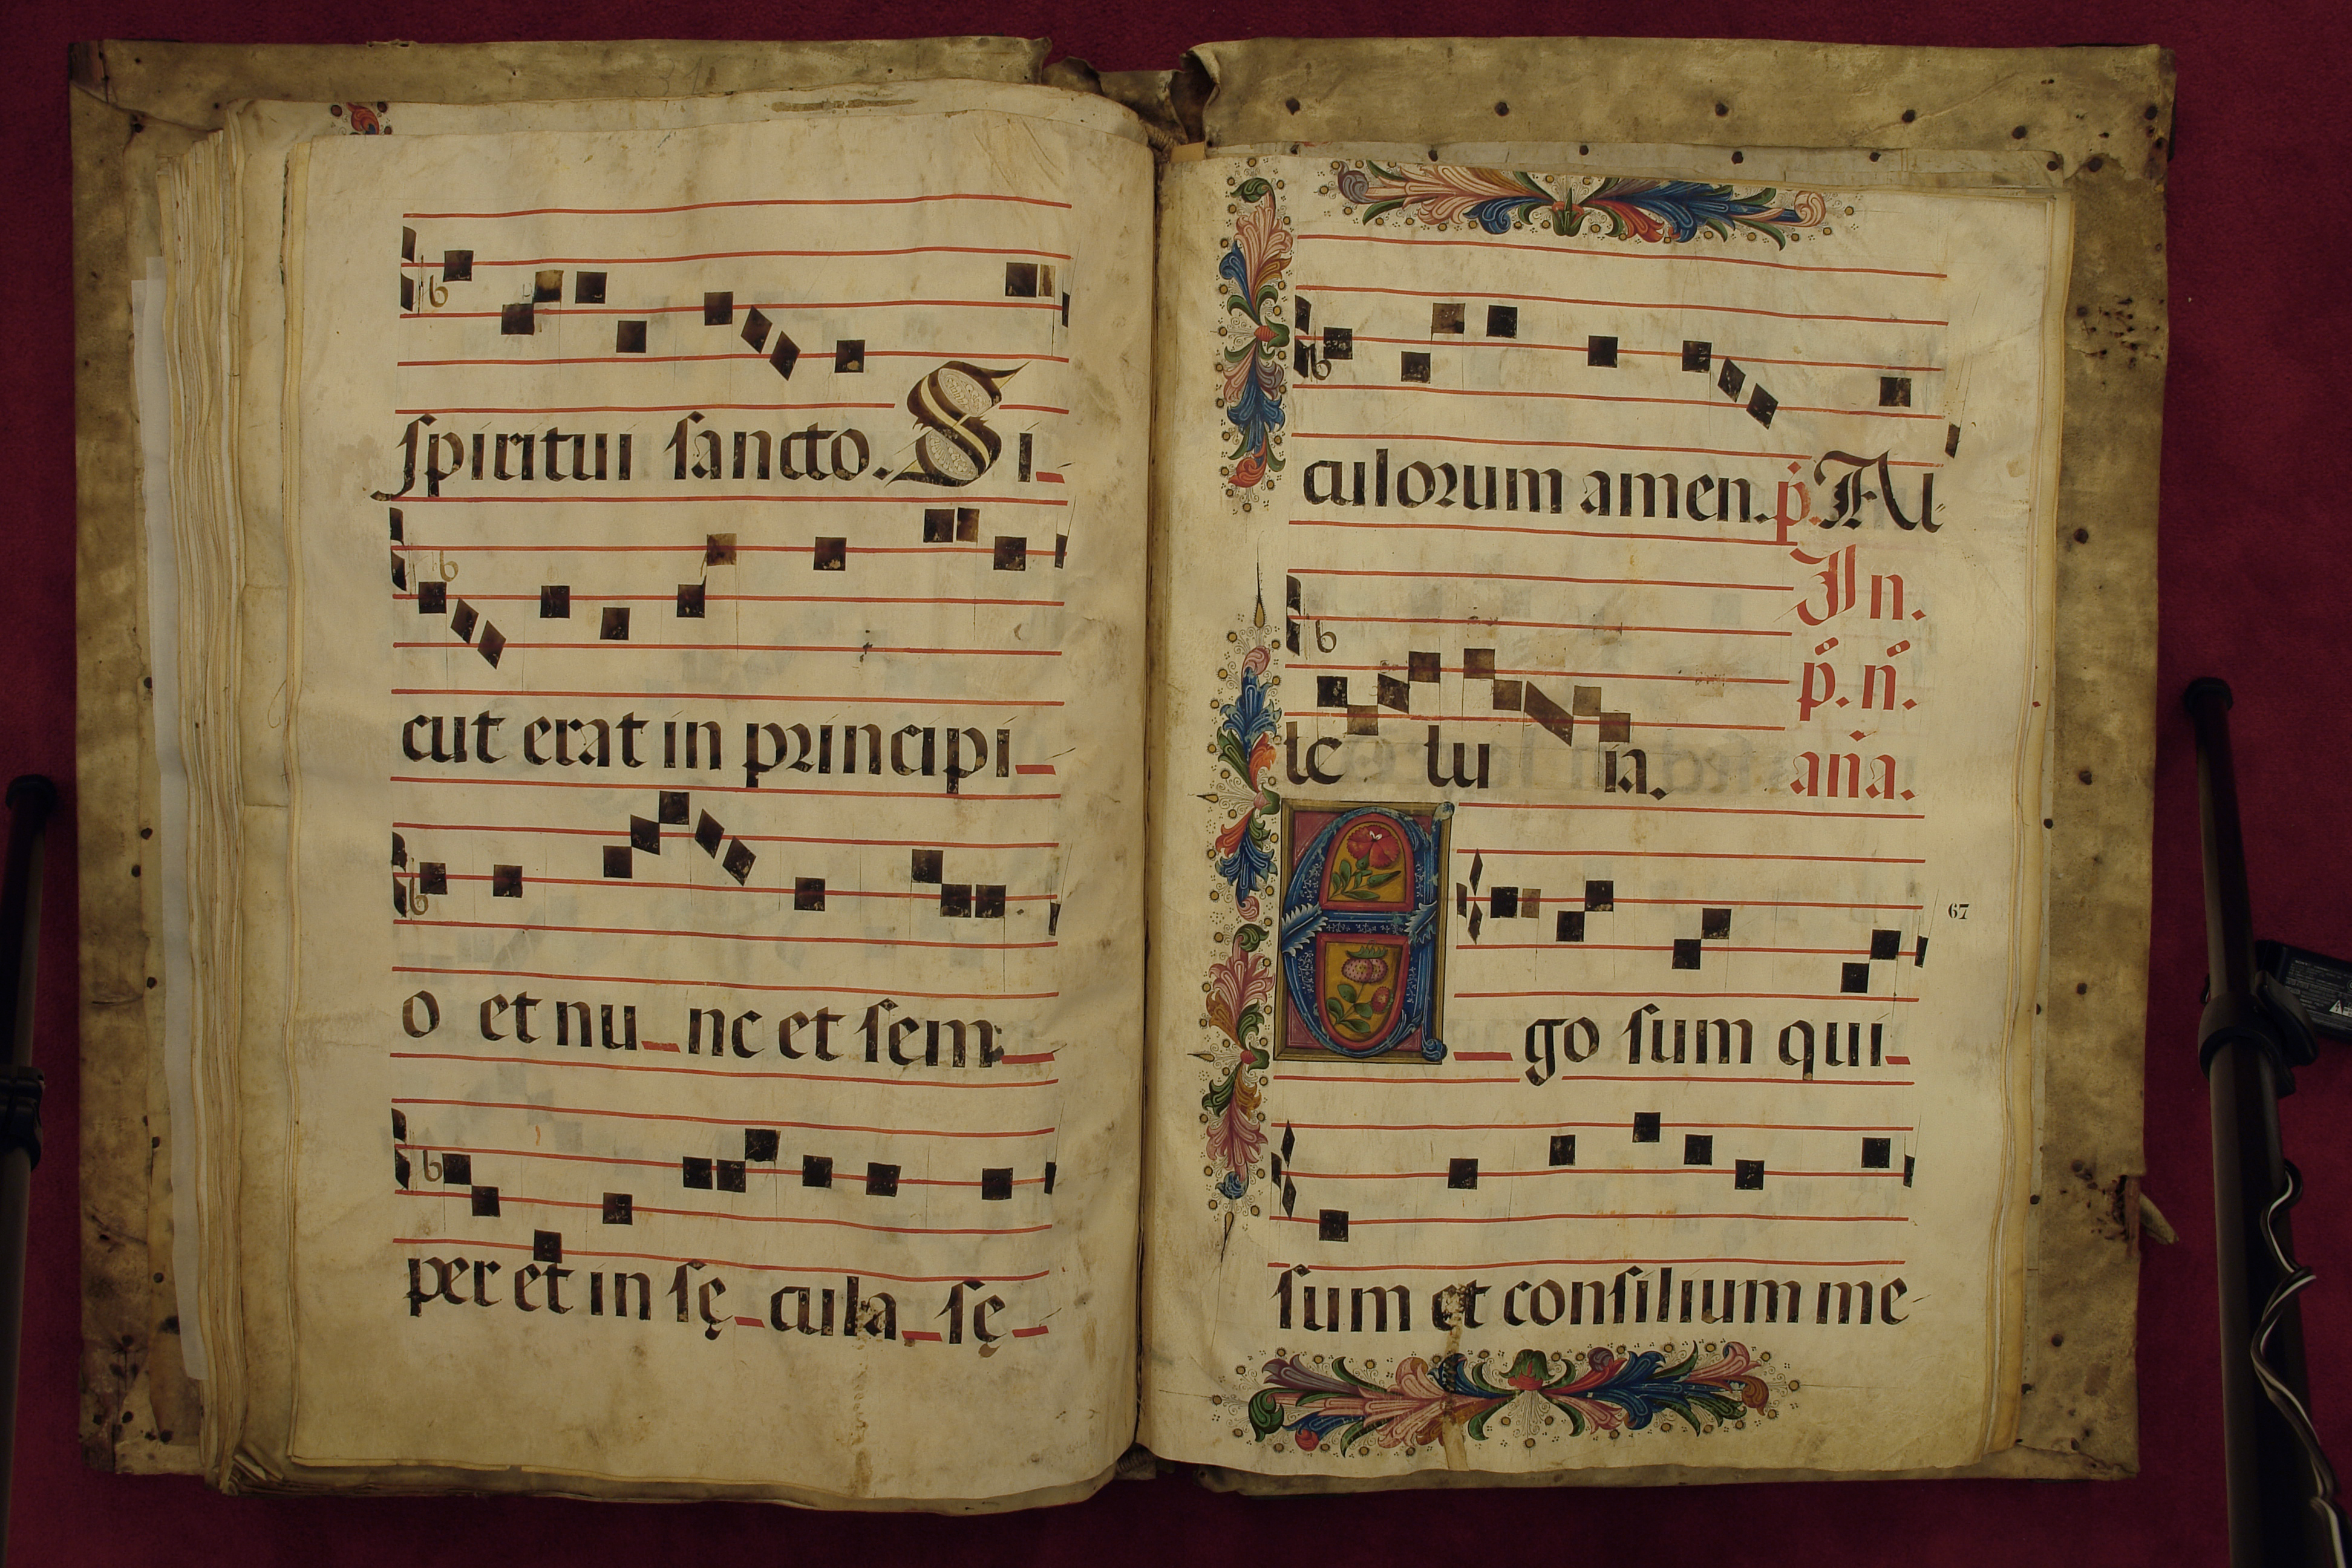 spiritui sancto. Si_
cut erat in principi_
o et nu_nc et sem_
per et in sę_cula_sę_
culorum amen. p. Al
In.
p̄. n̄.
le lu ia. ana.
E_go sum qui_
67
sum et consilium me-